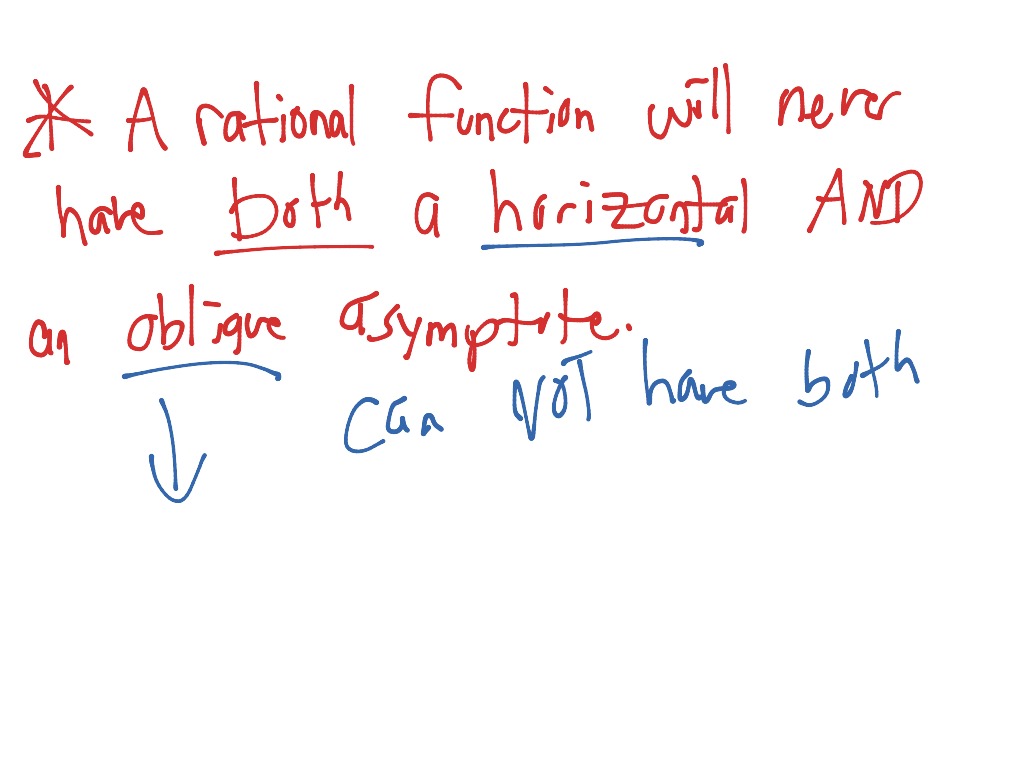 * A rational function will never
have both a horizontal AND
an oblique asymptote.
can NOT have both